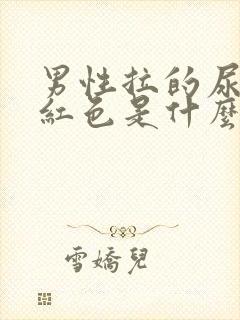 男性拉的尿
紅色是什麼
雪嬌兒